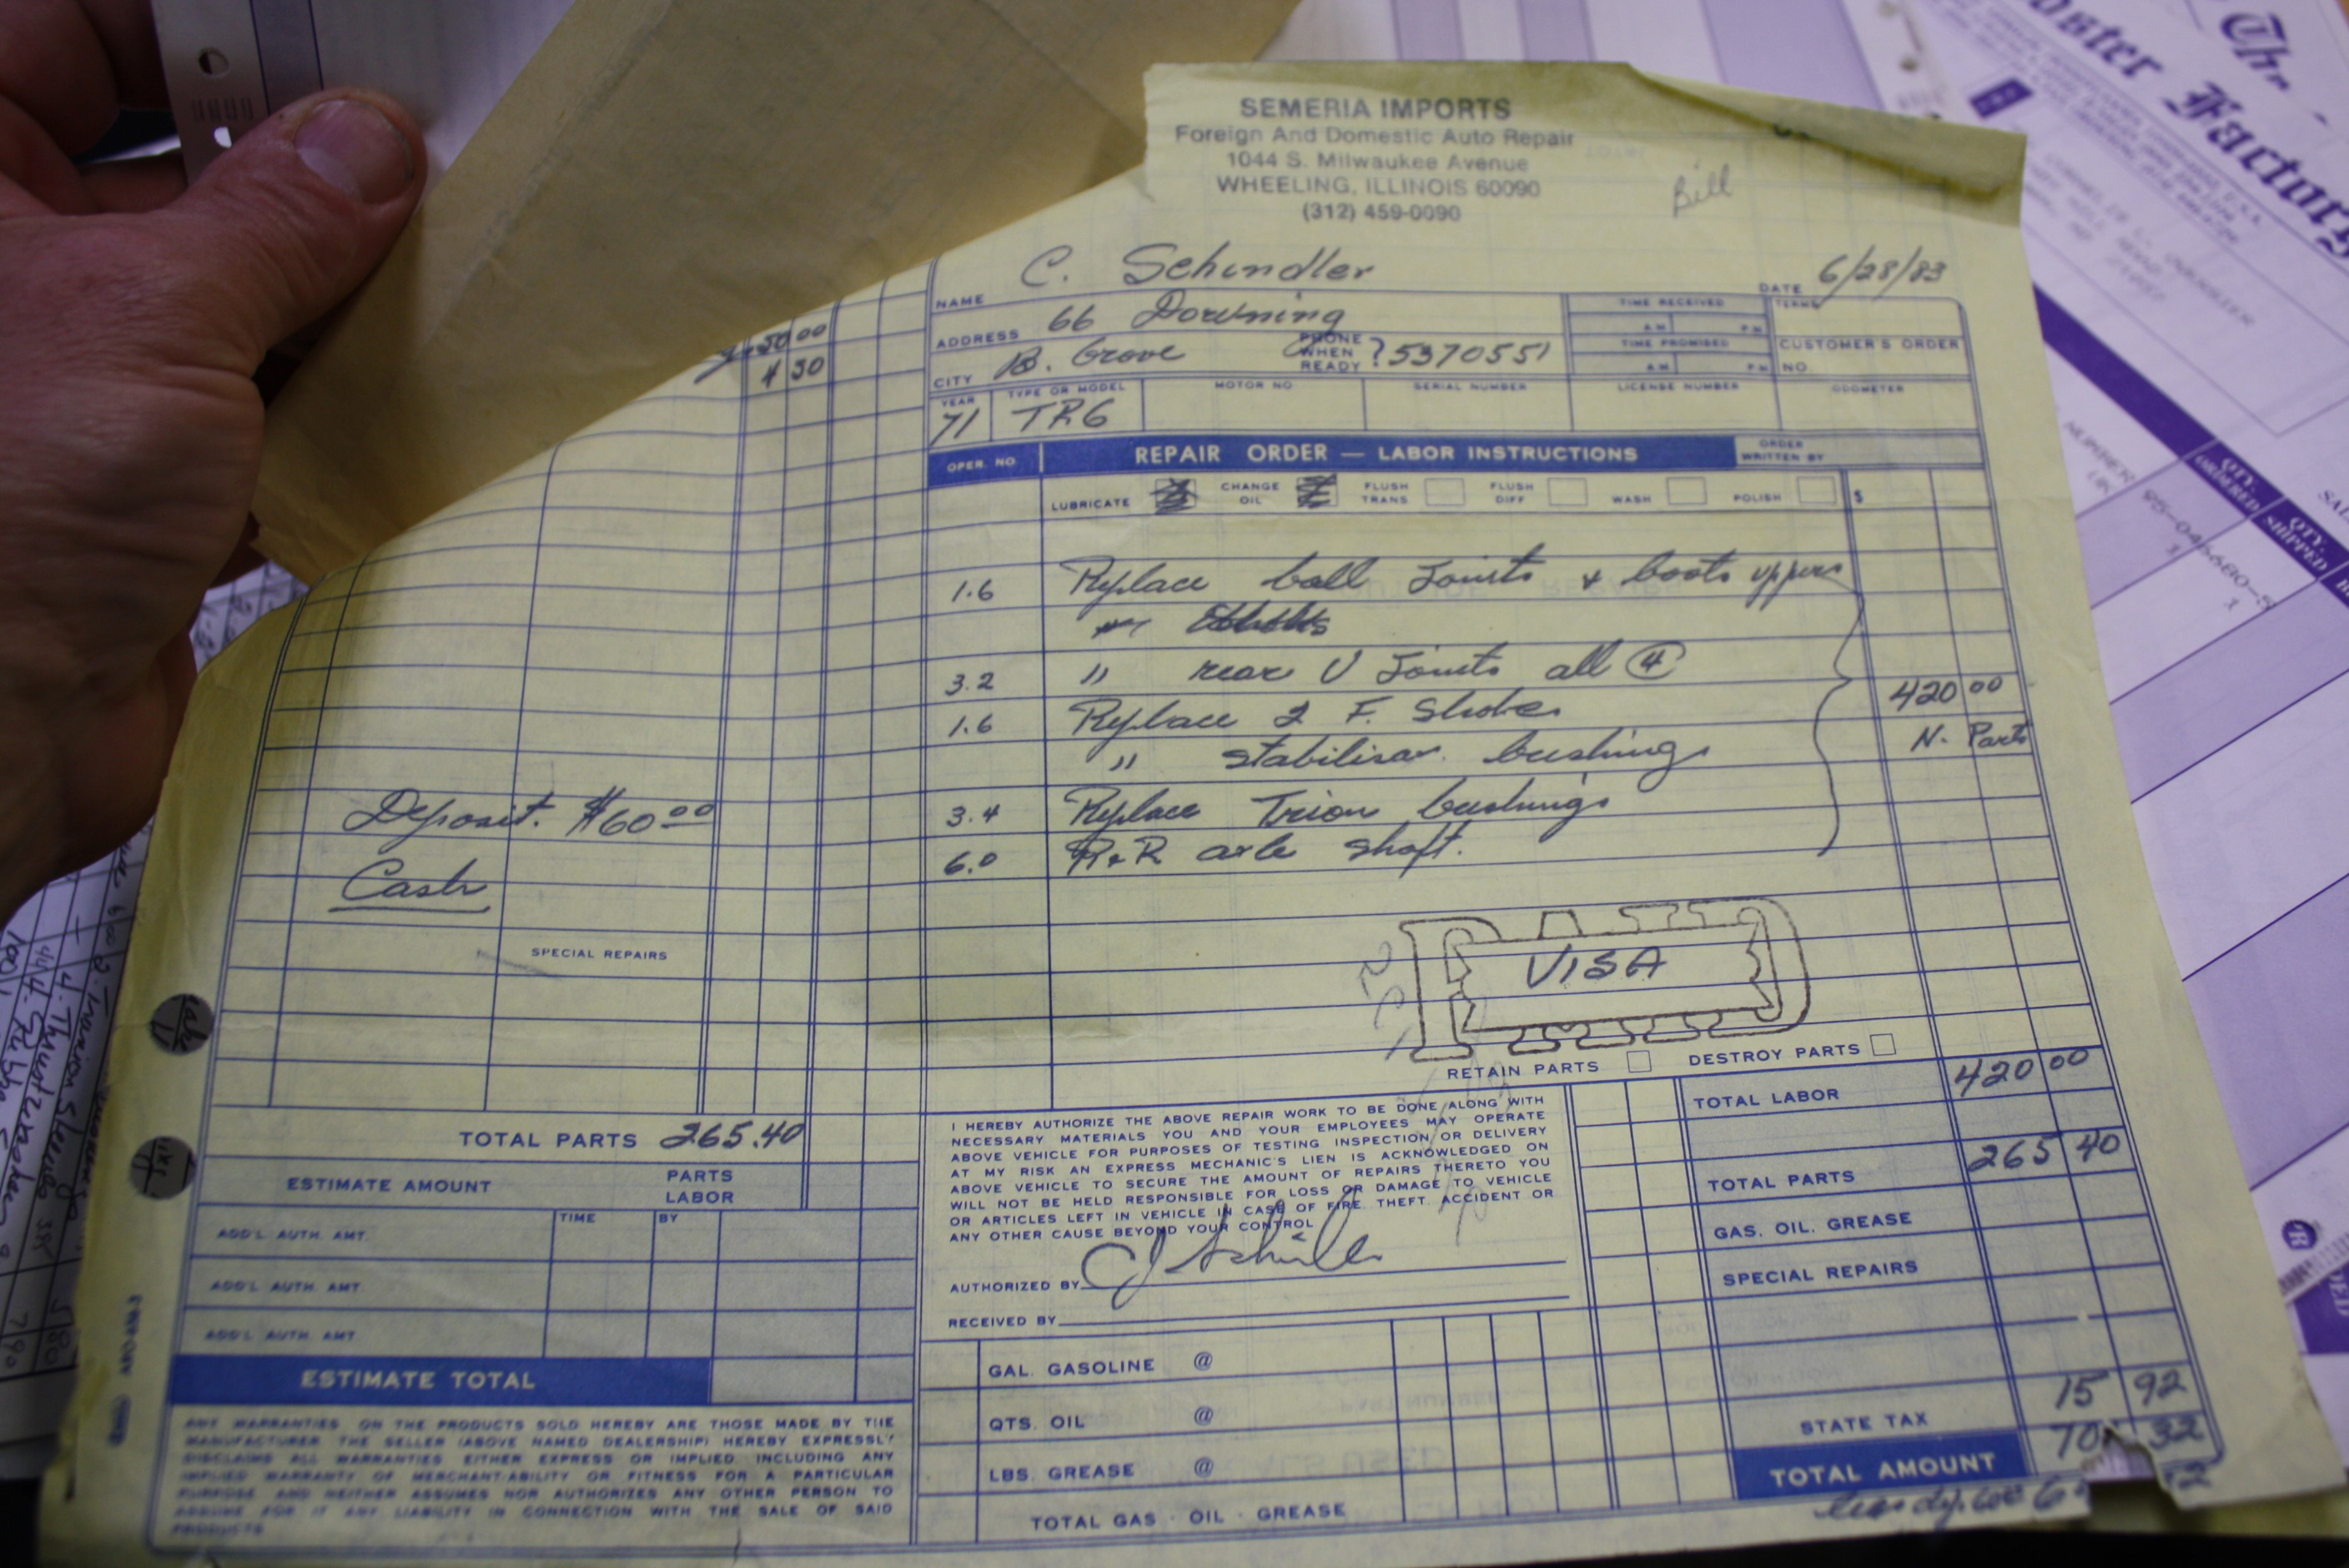 SEMERIA IMPORTS
Foreign And Domestic Auto Repair
1044 S. Milwaukee Avenue
WHEELING, ILLINOIS 60090
(312) 459-0090
Bill
NAME C. Schindler DATE 6/28/83
ADDRESS 66 Downing TIME RECEIVED TERMS
A.M. P.M.
CITY B. Grove PHONE WHEN READY ? 5370551 TIME PROMISED CUSTOMER'S ORDER NO.
A.M. P.M.
YEAR TYPE OR MODEL MOTOR NO. SERIAL NUMBER LICENSE NUMBER ODOMETER
71 TR6
OPER. NO. REPAIR ORDER — LABOR INSTRUCTIONS ORDER WRITTEN BY
LUBRICATE CHANGE OIL FLUSH TRANS FLUSH DIFF WASH POLISH $
1.6 Replace ball Joints & boots uppers
3.2 " rear U Joints all 4
1.6 Replace 2 F. Shokes 420 00
" stabilisar. bushings N. Parts
3.4 Replace Trion bushings
6.0 R&R axle shaft.
VISA
RETAIN PARTS DESTROY PARTS
50 00
4 30
Deposit. $60 00
Cash
SPECIAL REPAIRS
TOTAL PARTS 265.40
ESTIMATE AMOUNT PARTS
LABOR
TIME BY
ADD'L AUTH. AMT.
ADD'L AUTH. AMT.
ADD'L AUTH. AMT.
ESTIMATE TOTAL
ANY WARRANTIES ON THE PRODUCTS SOLD HEREBY ARE THOSE MADE BY THE
MANUFACTURER. THE SELLER (ABOVE NAMED DEALERSHIP) HEREBY EXPRESSLY
DISCLAIMS ALL WARRANTIES EITHER EXPRESS OR IMPLIED, INCLUDING ANY
IMPLIED WARRANTY OF MERCHANTABILITY OR FITNESS FOR A PARTICULAR
PURPOSE AND NEITHER ASSUMES NOR AUTHORIZES ANY OTHER PERSON TO
ASSUME FOR IT ANY LIABILITY IN CONNECTION WITH THE SALE OF SAID
PRODUCTS
I HEREBY AUTHORIZE THE ABOVE REPAIR WORK TO BE DONE ALONG WITH
NECESSARY MATERIALS. YOU AND YOUR EMPLOYEES MAY OPERATE
ABOVE VEHICLE FOR PURPOSES OF TESTING INSPECTION OR DELIVERY
AT MY RISK. AN EXPRESS MECHANIC'S LIEN IS ACKNOWLEDGED ON
ABOVE VEHICLE TO SECURE THE AMOUNT OF REPAIRS THERETO. YOU
WILL NOT BE HELD RESPONSIBLE FOR LOSS OR DAMAGE TO VEHICLE
OR ARTICLES LEFT IN VEHICLE IN CASE OF FIRE, THEFT, ACCIDENT OR
ANY OTHER CAUSE BEYOND YOUR CONTROL
AUTHORIZED BY
RECEIVED BY
GAL. GASOLINE @
QTS. OIL @
LBS. GREASE @
TOTAL GAS · OIL · GREASE
TOTAL LABOR 420 00
TOTAL PARTS 265 40
GAS, OIL, GREASE
SPECIAL REPAIRS
STATE TAX 15 92
TOTAL AMOUNT 70 32
The
Factory
NUMBER
QTY. ORDERED
QTY. SHIPPED